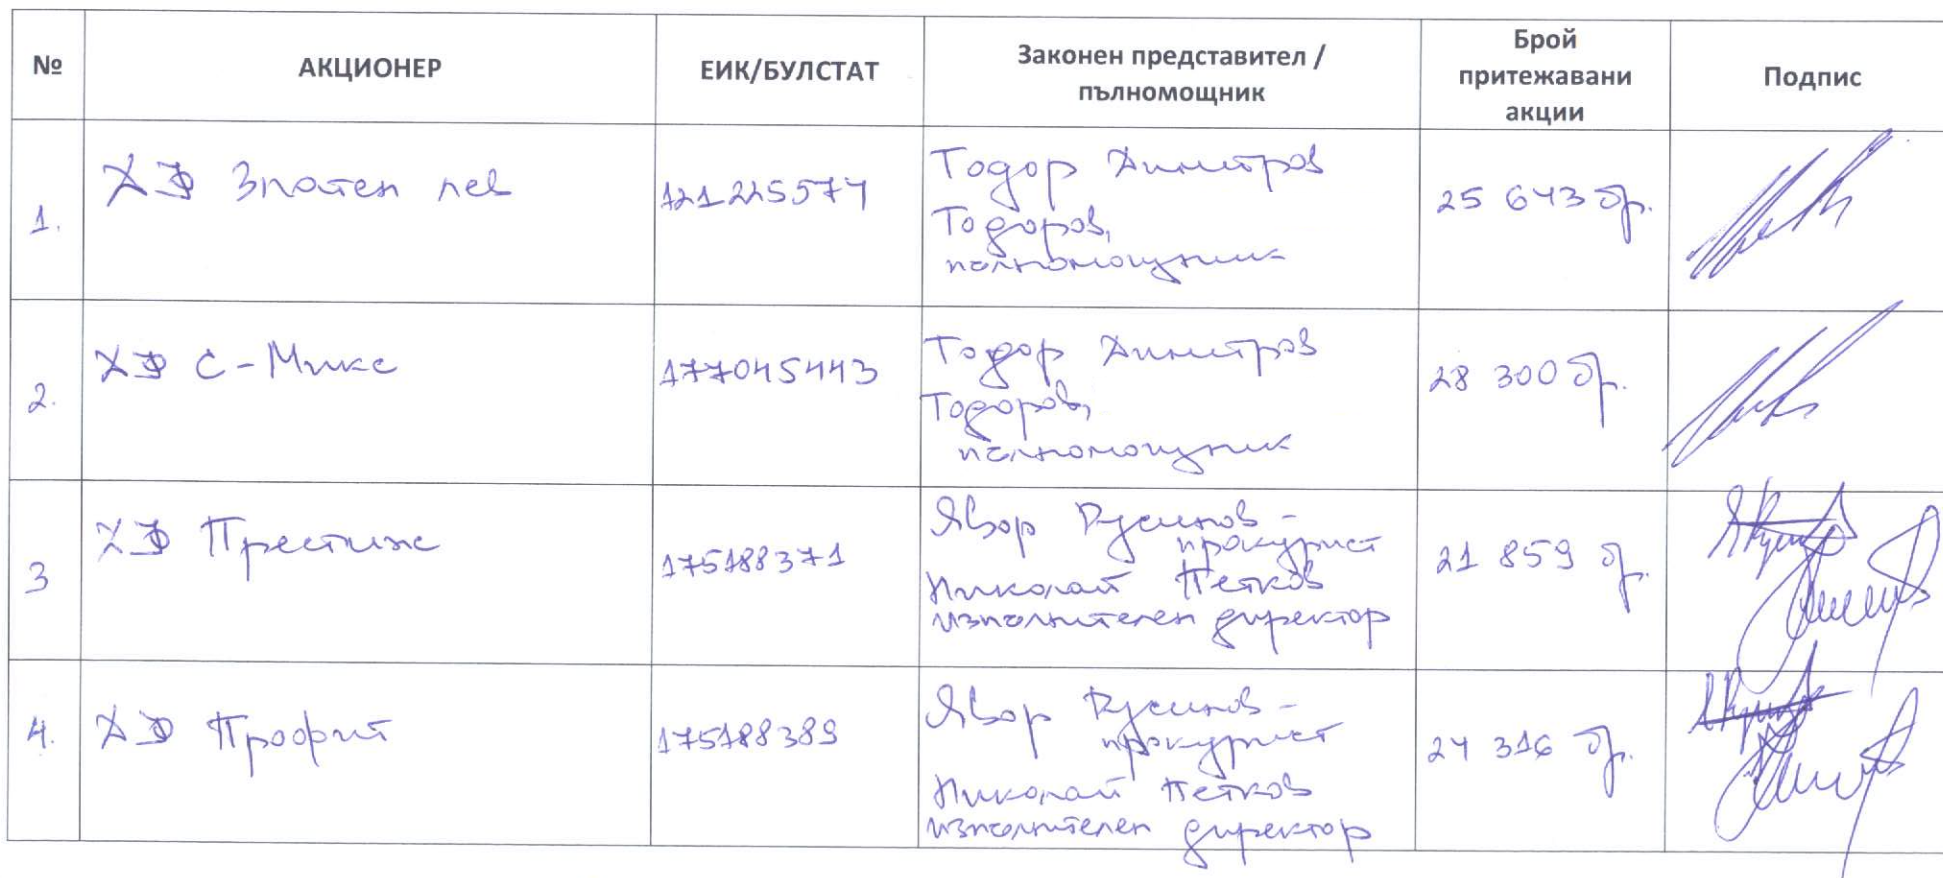 №
АКЦИОНЕР
ЕИК/БУЛСТАТ
Законен представител /
пълномощник
Брой
притежавани
акции
Подпис
1.
ХФ Златен лев
121225574
Тодор Димитров
Тодоров,
пълномощник
25 643 бр.
2.
ХФ С-Микс
177045443
Тодор Димитров
Тодоров,
пълномощник
28 300 бр.
3
ХФ Престиж
175188371
Явор Русинов -
прокурист
Николай Петков
изпълнителен директор
21 859 бр.
4.
ХФ Профит
175188389
Явор Русинов -
прокурист
Николай Петков
изпълнителен директор
24 316 бр.